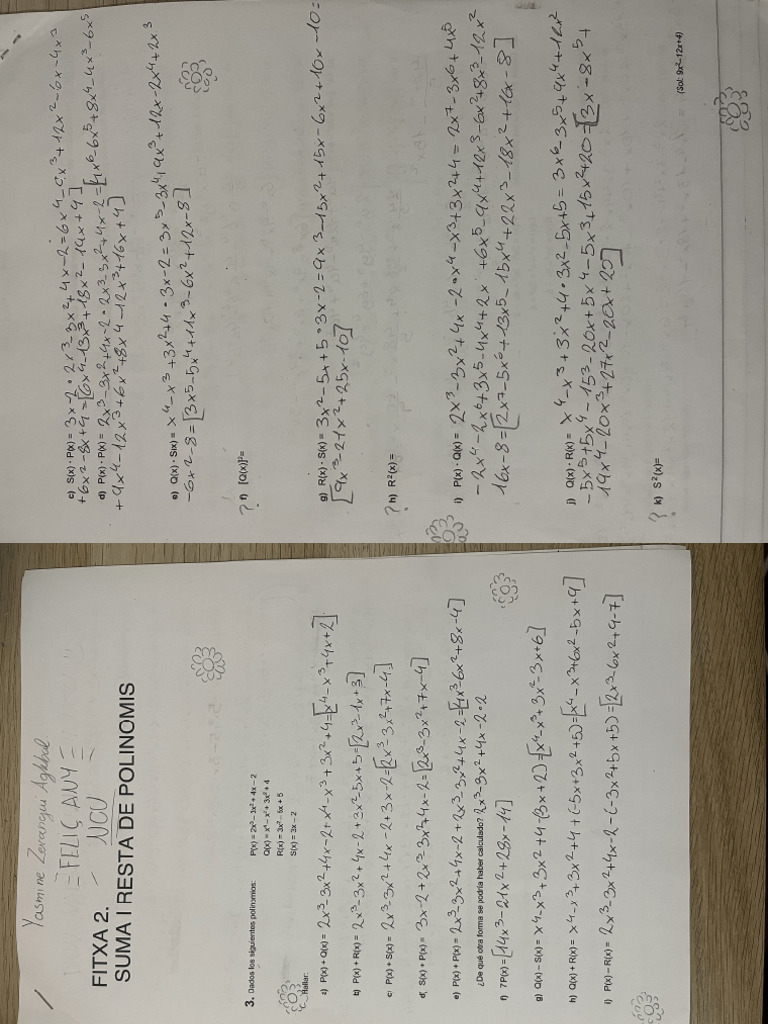 Yasmine Zerarigui Aghbal
= FELIÇ ANY =
NOU
FITXA 2.
SUMA I RESTA DE POLINOMIS
3. Dados los siguientes polinomios:
P(x) = 2x³ - 3x² + 4x - 2
Q(x) = x⁴ - x³ + 3x² + 4
R(x) = 3x² - 5x + 5
S(x) = 3x - 2
Hallar:
a) P(x) + Q(x) = 2x³-3x²+4x-2+x⁴-x³+3x²+4=[x⁴-x³+4x+2]
b) P(x) + R(x) = 2x³-3x²+4x-2+3x²-5x+5=[2x³-1x+3]
c) P(x) + S(x) = 2x³-3x²+4x-2+3x-2=[2x³-3x²+7x-4]
d) S(x) + P(x) = 3x-2+2x³-3x²+4x-2=[2x³-3x²+7x-4]
e) P(x) + P(x) = 2x³-3x²+4x-2+2x³-3x²+4x-2=[4x³-6x²+8x-4]
¿De qué otra forma se podría haber calculado? 2x³-3x²+4x-2·2
f) 7P(x) = [14x³-21x²+28x-14]
g) Q(x) – S(x) = x⁴-x³+3x²+4-(3x+2)=[x⁴-x³+3x²-3x+6]
h) Q(x) + R(x) = x⁴-x³+3x²+4+(-5x+3x²+5)=[x⁴-x³+6x²-5x+9]
i) P(x) – R(x) = 2x³-3x²+4x-2-(-3x²+5x+5)=[2x³-6x²+9-7]
c) S(x) · P(x) = 3x-2·2x³-3x²+4x-2=6x⁴-9x³+12x²-6x-4x³
+6x²-8x+4=[6x⁴-13x³+18x²-14x+4]
d) P(x) · P(x) = 2x³-3x²+4x-2·2x³-3x²+4x-2=[4x⁶-6x⁵+8x⁴-4x³-6x⁵
+9x⁴-12x³+6x²+8x⁴-12x³+16x+4]
e) Q(x) · S(x) = x⁴-x³+3x²+4·3x-2=3x⁵-3x⁴+9x³+12x-2x⁴+2x³
-6x²-8=[3x⁵-5x⁴+11x³-6x²+12x-8]
? f) [Q(x)]²=
g) R(x) · S(x) = 3x²-5x+5·3x-2=9x³-15x²+15x-6x²+10x-10=
[9x³-21x²+25x-10]
? h) R²(x) =
i) P(x) · Q(x) = 2x³-3x²+4x-2·x⁴-x³+3x²+4=2x⁷-3x⁶+4x⁵
-2x⁴-2x⁶+3x⁵-4x⁴+2x³+6x⁵-9x⁴+12x³-6x²+8x³-12x²
16x-8=[2x⁷-5x⁶+13x⁵-15x⁴+22x³-18x²+16x-8]
j) Q(x) · R(x) = x⁴-x³+3x²+4·3x²-5x+5=3x⁶-3x⁵+9x⁴+12x²
-5x⁵+5x⁴-15³-20x+5x⁴-5x³+15x²+20=[3x⁶-8x⁵+
19x⁴-20x³+27x²-20x+20]
? k) S²(x)=
(Sol: 9x²-12x+4)